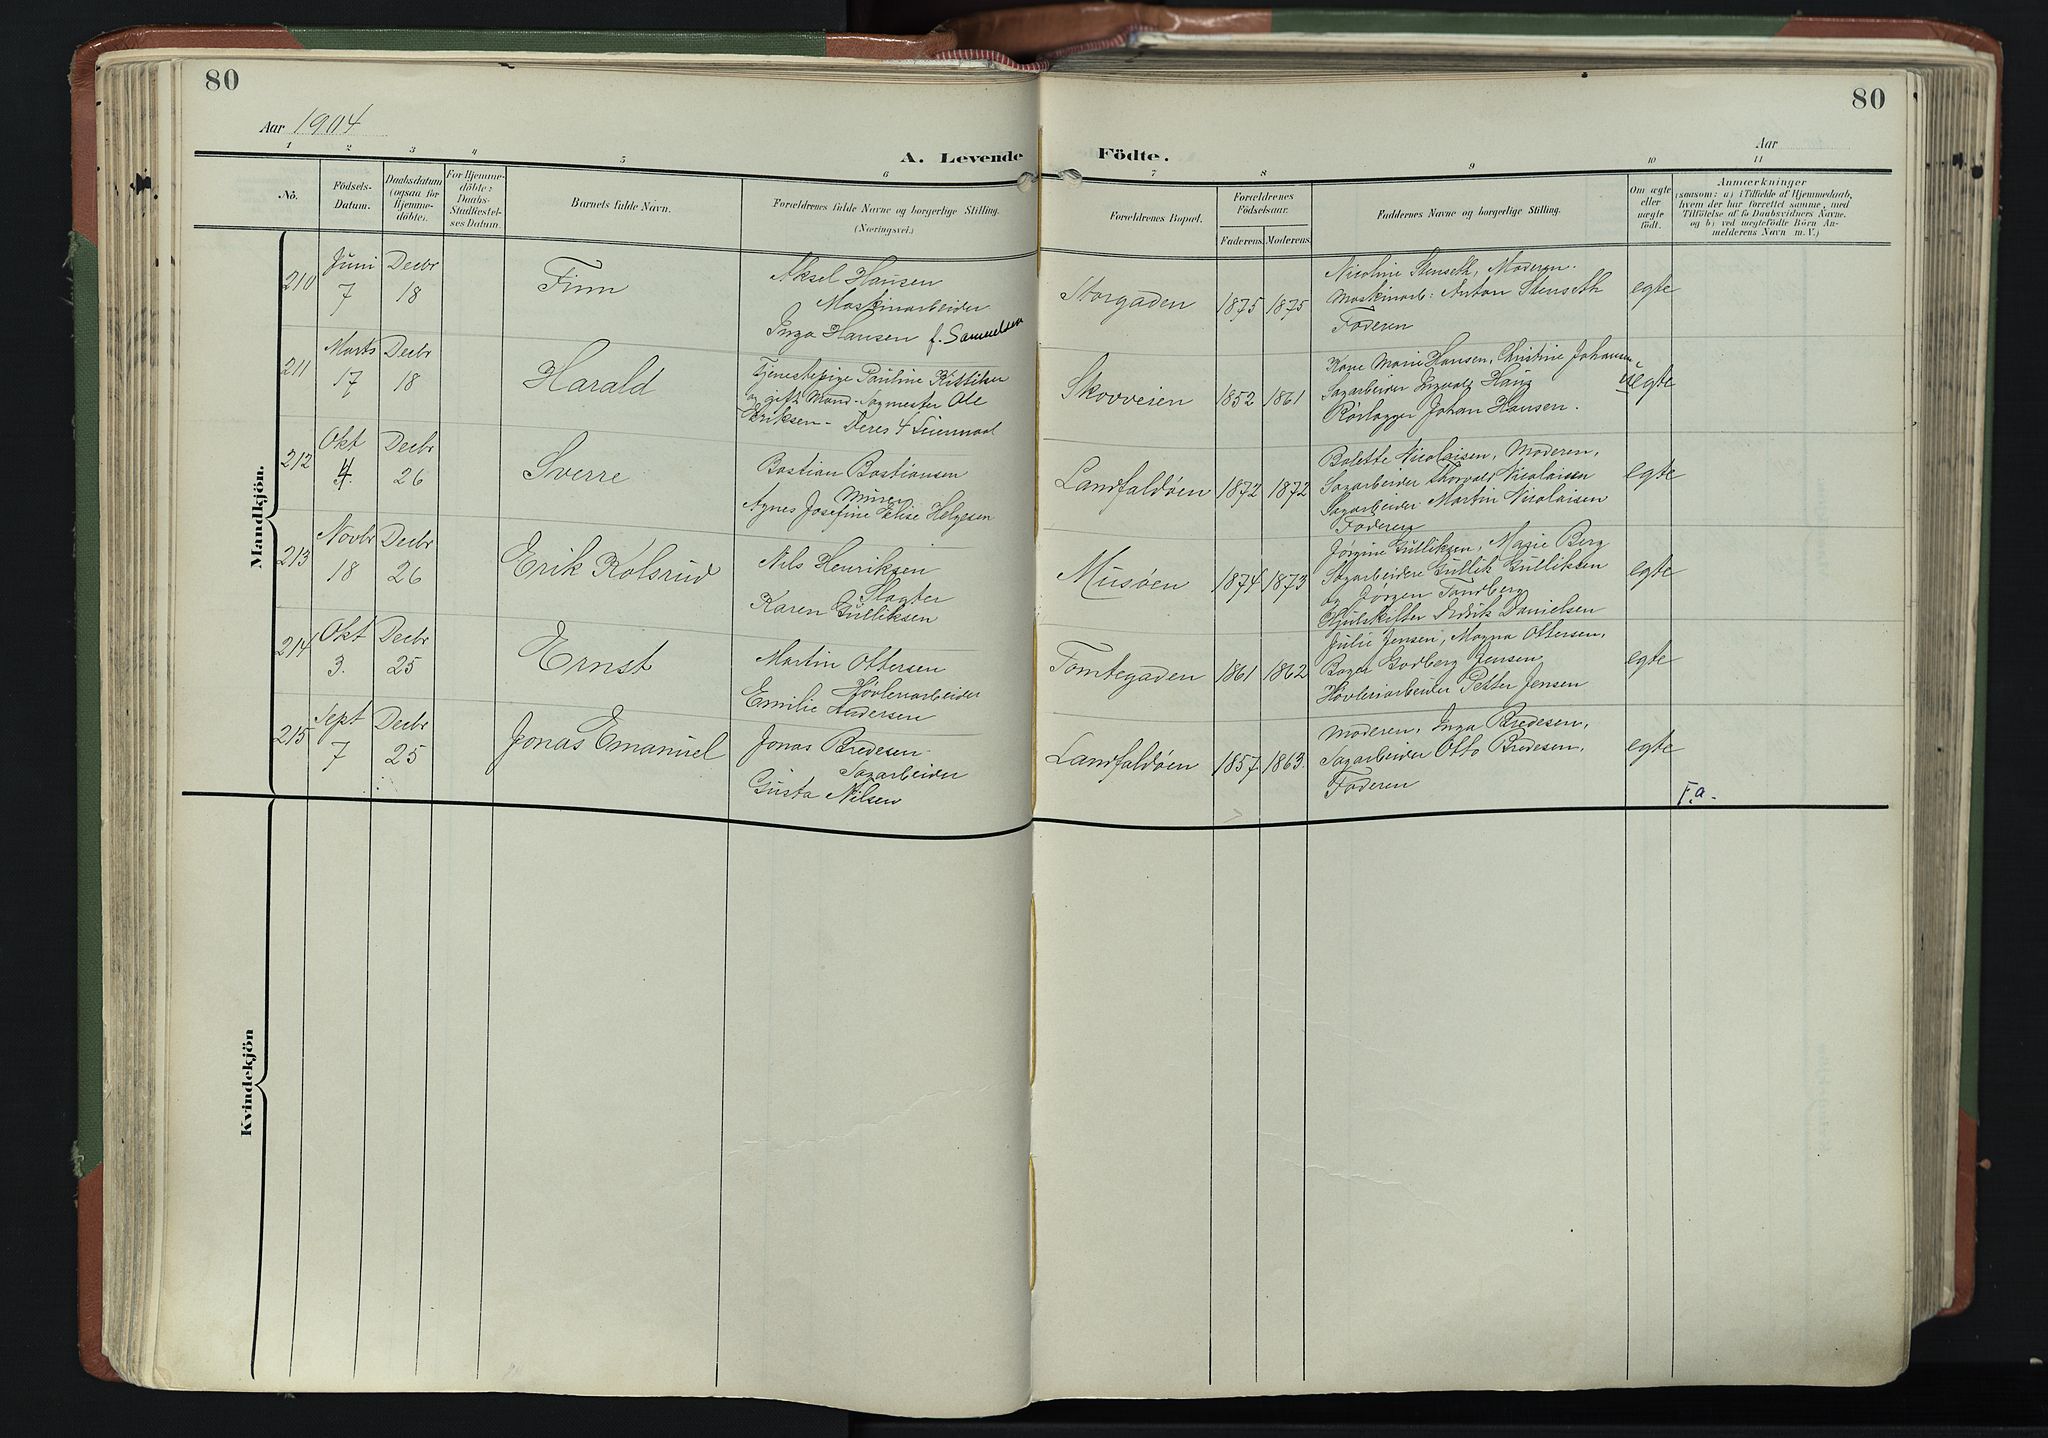 80
80
Aar 1904
Aar
1 2 3 4 5 6 7 8 9 10 11
A. Levende Födte.
No.
Födsels-Datum.
Daabsdatum (ogsaa for Hjemmedöbte).
For Hjemmedöbte: Daabs-Stadfestelses Datum.
Barnets fulde Navn.
Forældrenes fulde Navne og borgerlige Stilling.
(Næringsvei.)
Forældrenes Bopæl.
Forældrenes Födselsaar.
Faderens. Moderens.
Faddernes Navne og borgerlige Stilling.
Om ægte eller uægte födt.
Anmærkninger
(saasom: a) i Tilfælde af Hjemmedaab, hvem der har forrettet samme, med Tilföielse af to Daabsvidners Navne, og b) ved uægtefödte Börn Anmelderens Navn m. V.)
Mandkjön.
210 Juni 7 Decbr 18 Finn
Aksel Hansen
Maskinarbeider
Inga Hansen f. Samuelsen
Storgaden 1875 1875
Nicoline Stenseth, Moderen.
Maskinarb: Anton Stenseth
Faderen
egte
211 Marts 17 Decbr 18 Harald
Tjenestepige Pauline Kittilsen
og gift Mand - Sagmester Ole
Eriksen - Deres 4 Leiermaal
Skovveien 1852 1861
Kare Marie Hansen, Christine Johansen,
Sagarbeider Ingvald Haug
Rørlægger Johan Hansen.
uegte
212 Okt 4. Decbr 26 Sverre
Bastian Bastiansen
Murer
Agnes Josefine Elise Helgesen
Landfaldøen 1872 1872
Bolette Nicolaisen, Moderen,
Sagarbeider Thorvald Nicolaisen
Sagarbeider Martin Nicolaisen
Faderen
egte
213 Novbr 18 Decbr 26 Erik Kolsrud
Nils Henriksen
Slagter
Karen Gulliksen
Musøen 1874 1873
Jørgine Gulliksen, Magie Berg
Sagarbeidere Gullik Gulliksen
og Jørgen Tandberg
Hjulskifter Fredrik Danielsen
egte
214 Okt 3. Decbr 25 Ernst
Martin Ottersen
Høvleriarbeider
Emilie Andersen
Tomtegaden 1861 1862
Julie Jensen, Magna Ottersen,
Bager Godberg Jensen
Høvleriarbeider Petter Jensen
egte
215 Sept 7 Decbr 25 Jonas Emanuel
Jonas Bredesen
Sagarbeider
Gusta Nilsen
Landfaldøen 1857 1863.
Moderen, Inga Bredesen,
Sagarbeider Otto Bredesen,
Faderen
egte
F.a.
Kvindekjön